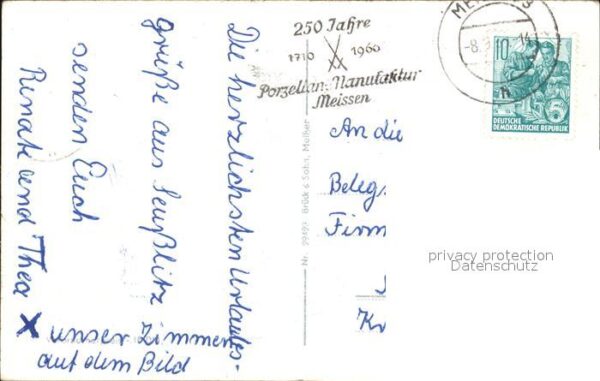 250 Jahre
1710 1960
Porzellan-Manufaktur
Meissen
10
5
DEUTSCHE
DEMOKRATISCHE REPUBLIK
Die herzlichsten Urlaubs-
grüße aus Seußlitz
senden Euch
Renate und Thea
X unser Zimmer
auf dem Bild
An die
Beleg
Firm
Nr. Brück & Sohn,
privacy protection
Datenschutz